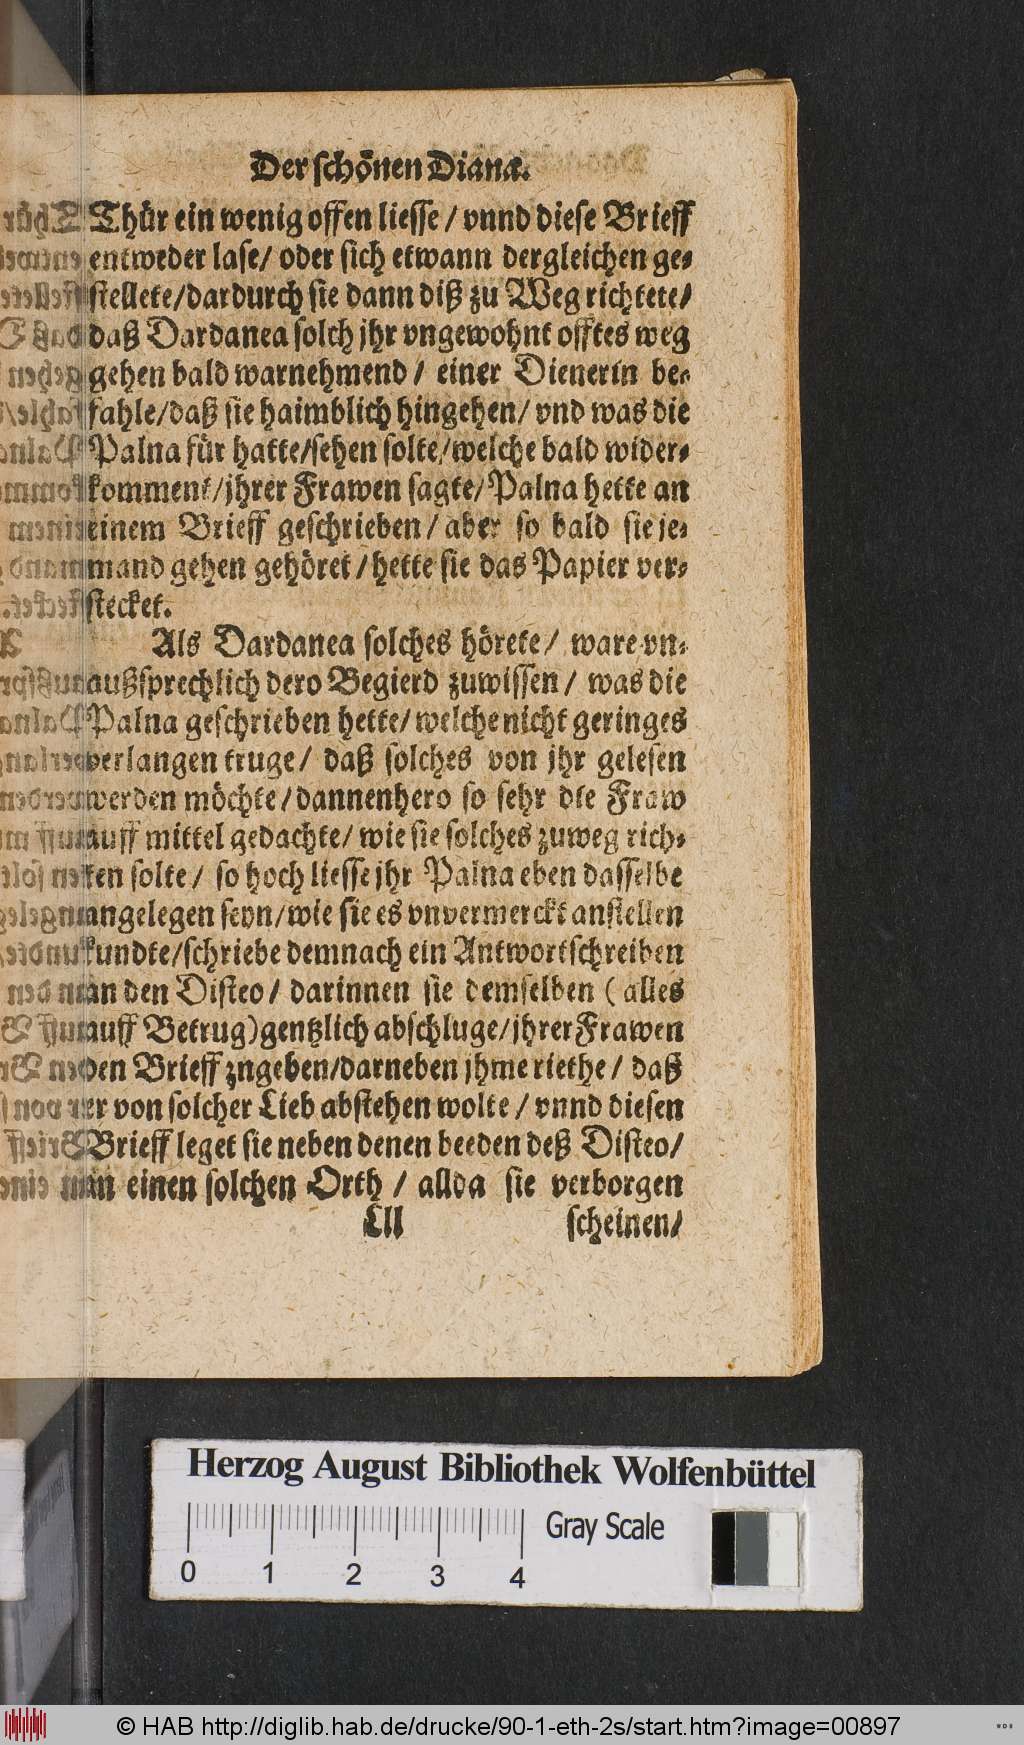 Der schönen Dianæ.
Thür ein wenig offen liesse / vnnd diese Brieff
entweder lase / oder sich etwann dergleichen ge-
stellete / dardurch sie dann diß zu Weg richtete /
daß Dardanea solch jhr vngewohnt offtes weg
gehen bald warnehmend / einer Dienerin be-
fahle / daß sie haimblich hingehen / vnd was die
Palna für hatte / sehen solte / welche bald wider-
komment / jhrer Frawen sagte / Palna hette an
einem Brieff geschrieben / aber so bald sie je-
mand gehen gehöret / hette sie das Papier ver-
stecket.
Als Dardanea solches hörete / ware vn-
außsprechlich dero Begierd zuwissen / was die
Palna geschrieben hette / welche nicht geringes
verlangen truge / daß solches von jhr gelesen
werden möchte / dannenhero so sehr die Fraw
auff mittel gedachte / wie sie solches zuweg rich-
ten solte / so hoch liesse jhr Palna eben dasselbe
angelegen seyn / wie sie es vnvermerckt anstellen
kundte / schriebe demnach ein Antwortschreiben
an den Disteo / darinnen sie demselben ( alles
auff Betrug ) gentzlich abschluge / jhrer Frawen
den Brieff zngeben / darneben jhme riethe / daß
er von solcher Lieb abstehen wolte / vnnd diesen
Brieff leget sie neben denen beeden deß Disteo /
an einen solchen Orth / allda sie verborgen
Lll scheinen /
Herzog August Bibliothek Wolfenbüttel
0 1 2 3 4 Gray Scale
© HAB http://diglib.hab.de/drucke/90-1-eth-2s/start.htm?image=00897